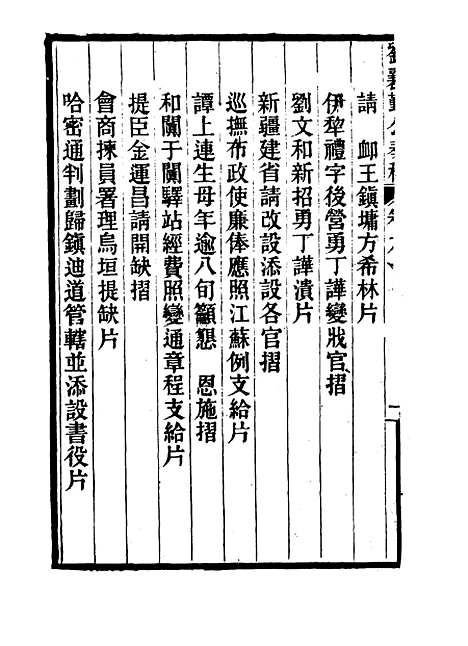 請 卹王鎮墉方希林片
伊犂禮字後營勇丁譁變戕官摺
劉文和新招勇丁譁潰片
新疆建省請改設添設各官摺
巡撫布政使廉俸應照江蘇例支給片
譚上連生母年逾八旬籲懇 恩施摺
和闐于闐驛站經費照變通章程支給片
提臣金運昌請開缺摺
會商揀員署理烏垣提缺片
哈密通判劃歸鎮迪道管轄並添設書役片